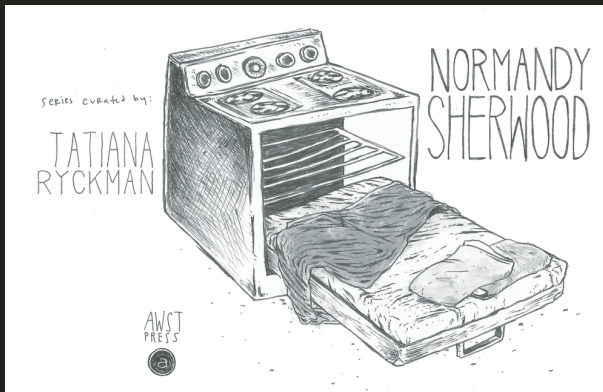 series curated by:
TATIANA
RYCKMAN
NORMANDY
SHERWOOD
AWST
PRESS
a